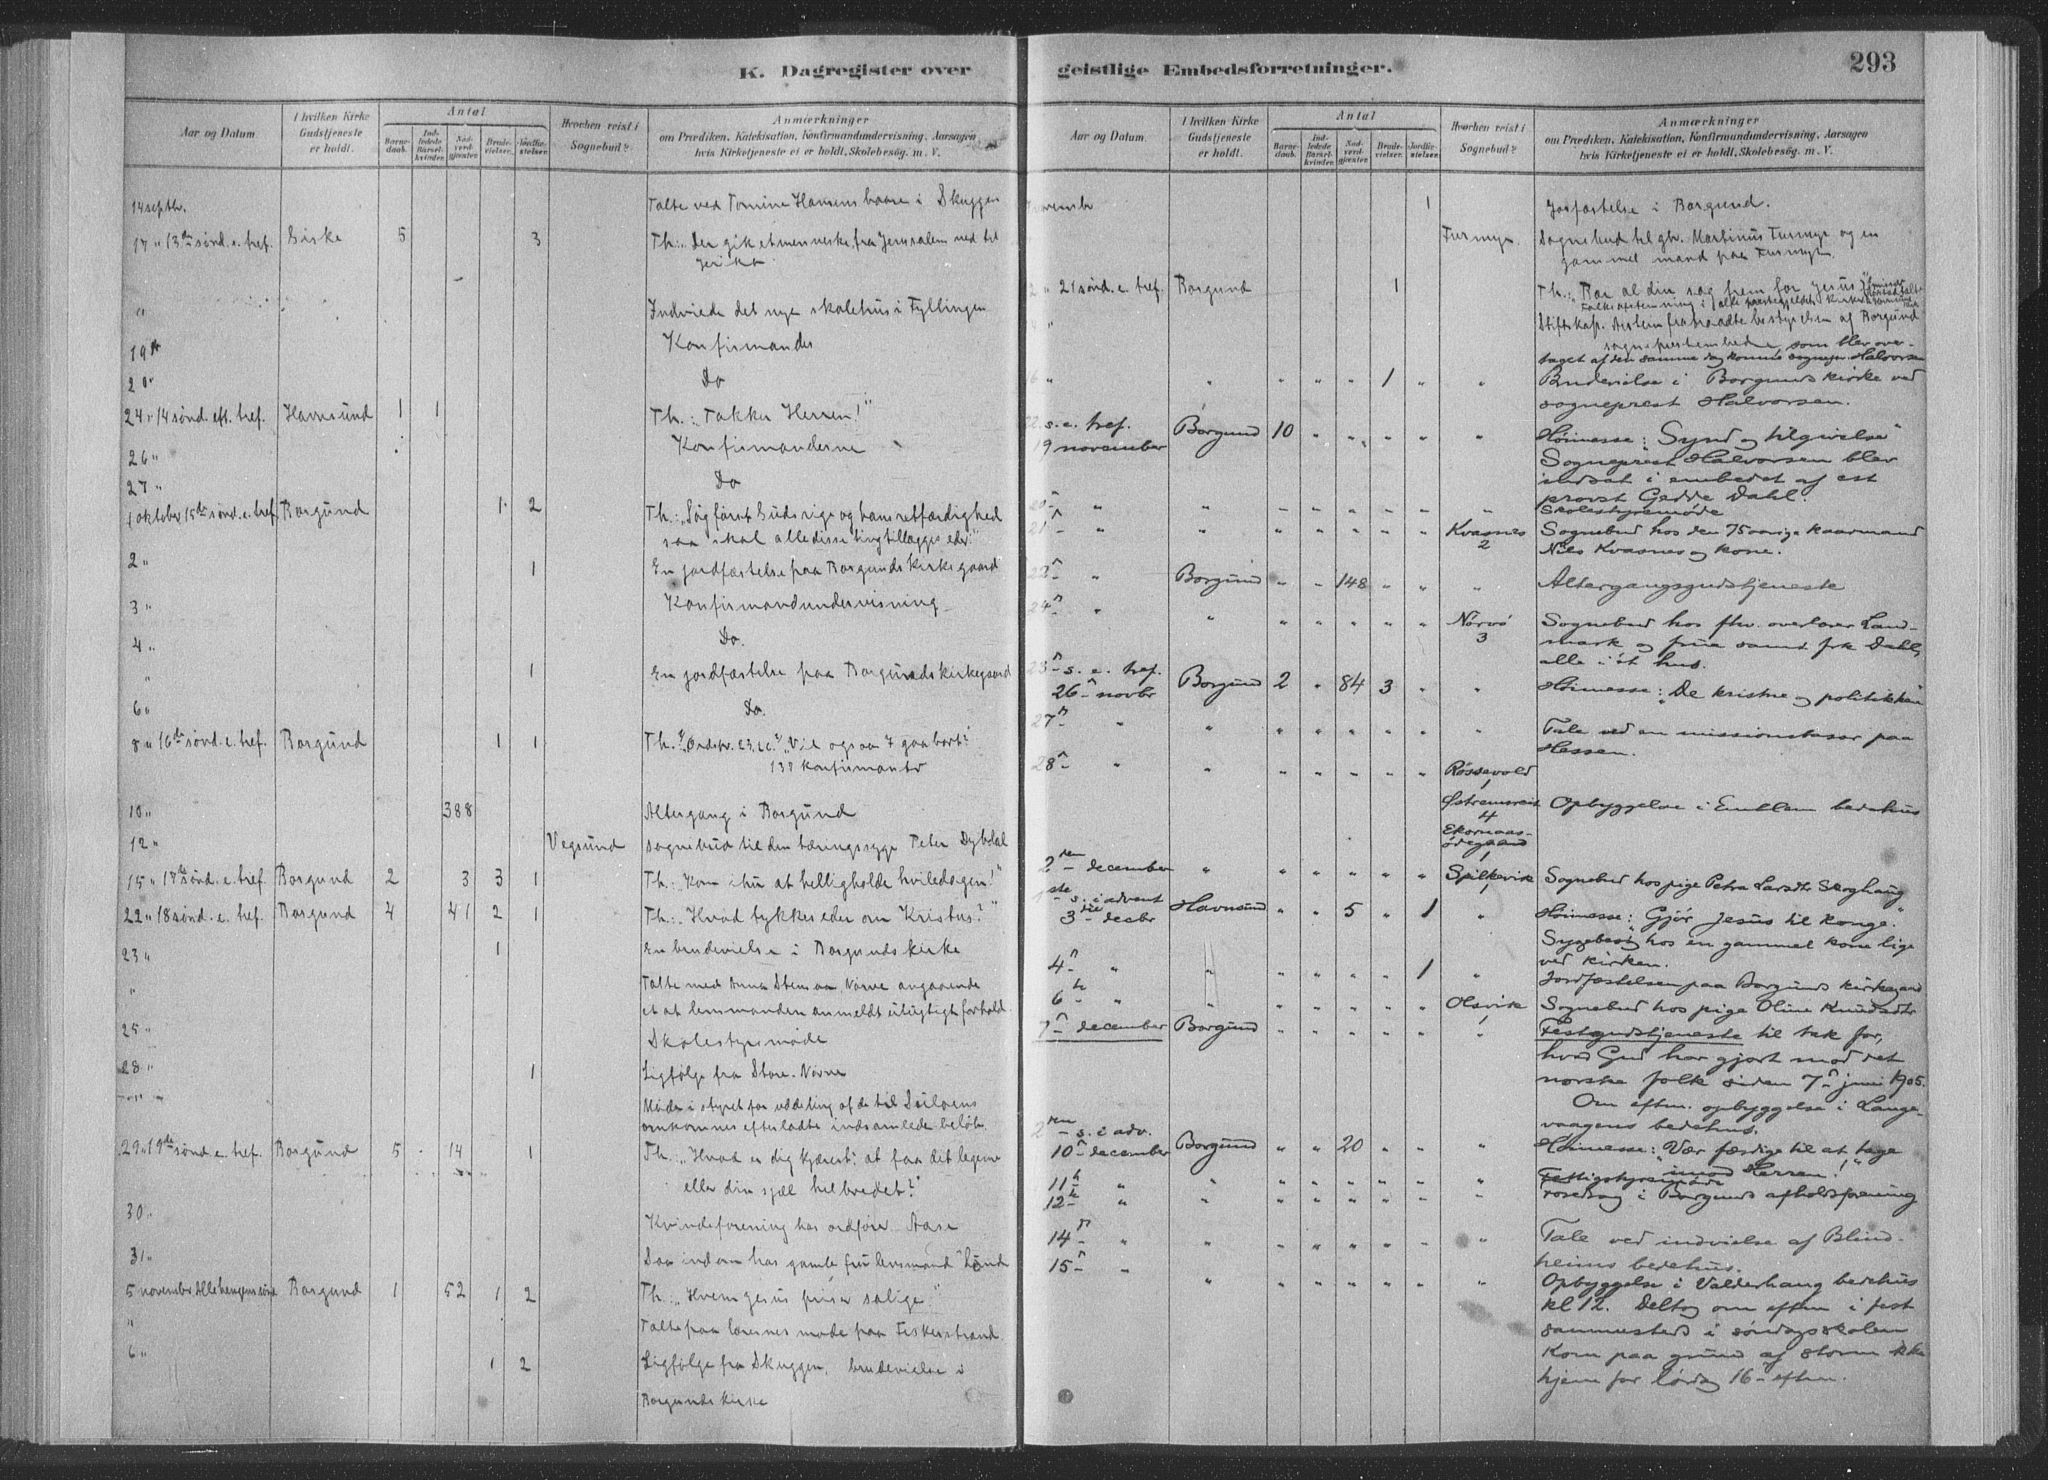 K. Dagregister over
Aar og Datum.
I hvilken Kirke Gudstjeneste er holdt.
Antal
Barnedaab.
Indledede Barselkvinder.
Nadverdgjæster.
Brudevielser.
Jordfæstelser.
Hvorhen reist i Sognebud?
Anmærkninger
om Prædiken, Katekisation, Konfirmandundervisning, Aarsagen
hvis Kirketjeneste ei er holdt, Skolebesøg. m. V.
14 septbr. Talte ved Tomine Hansens baare i Skuggen
17 " 13de sønd. e. tref. Giske 5 3 Th: Der gik et menneske fra Jerusalem ned til
Jeriko
" Indviede det nye skolehus i Fyllingen
19 Konfirmander
20 " Do
24 " 14 sønd. eft. tref. Havnsund 1 1 Th: "Takker Herren!"
26 " Konfirmanderne
27 " Do
1 oktober 15de sønd. e. tref. Borgund 1 2 Th: "Søg først Guds rige og hans retfærdighed
saa skal alle disse ting tillægges eder."
2 " 1 En jordfæstelse paa Borgunds kirkegaard
3 " Konfirmandundervisning
4 " Do.
" 1 En jordfæstelse paa Borgunds kirkegaard
6 " Do.
8 " 16de sønd. e. tref. Borgund 1 1 Th: "Ordspr. 23.26." "Vil ogsaa I gaa bort?"
Konfirmanter
10 " 388 Altergang i Borgund
12 " Vegsund sognebud til den tæringssyge Peter Dybdal
15 " 17de sønd. e. tref. Borgund 2 3 3 1 Th: "Kom ihu at helligholde hviledagen!"
22 " 18 sønd. e. tref. Borgund 4 41 2 1 Th: "Hvad tykkes eder om Kristus?"
23 " 1 En brudevielse i Borgunds kirke
" Talte med Anna Stensaa, Nørve angaaende
et af lensmanden anmeldt utugtigt forhold.
25 " Skolestyremøde
28 " 1 Ligfølge fra Store-Nørve
" Møde i styret for uddeling af de til
omkomnes efterladte indsamlede beløb.
29 " 19de sønd. e. tref. Borgund 5 14 1 Th: "Hvad er dig kjærest: at faa dit legeme
eller din sjæl helbredet?"
30 " Kvindeforening hos ordfører Aase
31 " Saa indom hos gamle fru lensmand Lunde
5 november Allehelgenssønd. Borgund 1 52 1 2 Th: "Hvem Jesus priser salige."
" Talte paa lærernes møde paa Fiskerstrand
6 " 1 2 Ligfølge fra Skuggen, brudevielse i
Borgunds kirke
geistlige Embedsforretninger.
293
Aar og Datum.
I hvilken Kirke Gudstjeneste er holdt.
Antal
Barnedaab.
Indledede Barselkvinder.
Nadverdgjæster.
Brudevielser.
Jordfæstelser.
Hvorhen reist i Sognebud?
Anmærkninger
om Prædiken, Katekisation, Konfirmandundervisning, Aarsagen
hvis Kirketjeneste ei er holdt, Skolebesøg. m. V.
novembr 1 Jordfæstelse i Borgund.
Furmyr. Sognebud til gbr. Martinus Furmyr og en
gammel mand paa Furmyr.
" 21 sønd. e. tref. Borgund 1 Th: "Bær al din sag frem for Jesus"
Folkeafstemning i
" Stiftskap. Astem fratraadte bestyrelsen af Borgund
sogneprestembede, som blev over-
taget af den samme dag komne sogneprest Halvorsen
" " " " " 1 " " Brudevielse i Borgunds kirke ved
sogneprest Halvorsen.
22 s. e. tref.
19 november Borgund 10 " " " " " Høimesse: "Synd og tilgivelse"
Sogneprest Halvorsen blev
indsat i embedet af cst
provst Gedde Dahl.
20 " " " " " " " " Skolestyremøde
21 " " " " " " " Kvasnes 2 Sognebud hos den 75 aarige kaarmand
Nils Kvasnes og kone.
22 " Borgund " " 148 " " " Altergangsgudstjeneste
24 " " " " " " " Nørvø 3 Sognebud hos fhv. overlærer Land-
mark og frue samt frk Dahl,
alle i ét hus.
23 s. e. tref.
26 novbr Borgund 2 " 84 3 " " Høimesse: "De kristne og politikken"
27 " " " " " " " " Tale ved en missionsbasar paa
Hessen.
28 " " " " " " " Røssevold 1
Østremsreit 4 Opbyggelse i Emblem bedehus
Ekornaas-
ødegaard 1
2den december " " " " " " Spilkevik 1 Sognebud hos pige Petra Larsdtr Skoghaug
1ste s. i advent
3die decbr Havnsund " " 5 " 1 " Høimesse: "Gjør Jesus til konge."
Sygebesøg hos en gammel kone lige
ved kirken.
4 " " " " " " 1 " Jordfæstelsen paa Borgunds kirkegaard
6 " " " " " " " Olsvik 1 Sognebud hos pige Oline Knudsdtr
7 december Borgund " " " " " " Festgudstjeneste til tak for,
hvad Gud har gjort mod det
norske folk siden 7 juni 1905.
Om eftm. opbyggelse i Lange-
vaagens bedehus.
2den s. i adv.
10 december Borgund " " 20 " " " Høimesse: "Vær færdige til at tage
imod Herren!"
11 " " " " " " " " Fattigstyremøde
12 " " " " " " " " Foredrag i Borgunds afholdsforening
14 " " " " " " " " Tale ved indvielse af Blind-
heims bedehus.
15 " " " " " " " " Opbyggelse i Valderhaug bedehus
kl 12. Deltog om eftm i fest
sammesteds i søndagsskolen
Kom paa grund af storm ikke
hjem før lørdag 16 eftm.